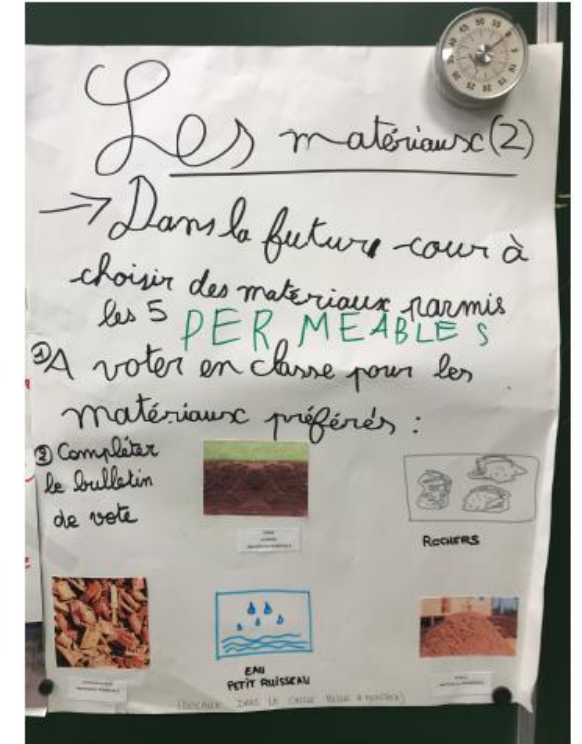 Les matériaux (2)
→ Dans la future cour à
choisir des matériaux parmis
les 5 PERMEABLES
① A voter en classe pour les
matériaux préférés :
② Compléter
le bulletin
de vote
ROCHERS
EAU
PETIT RUISSEAU